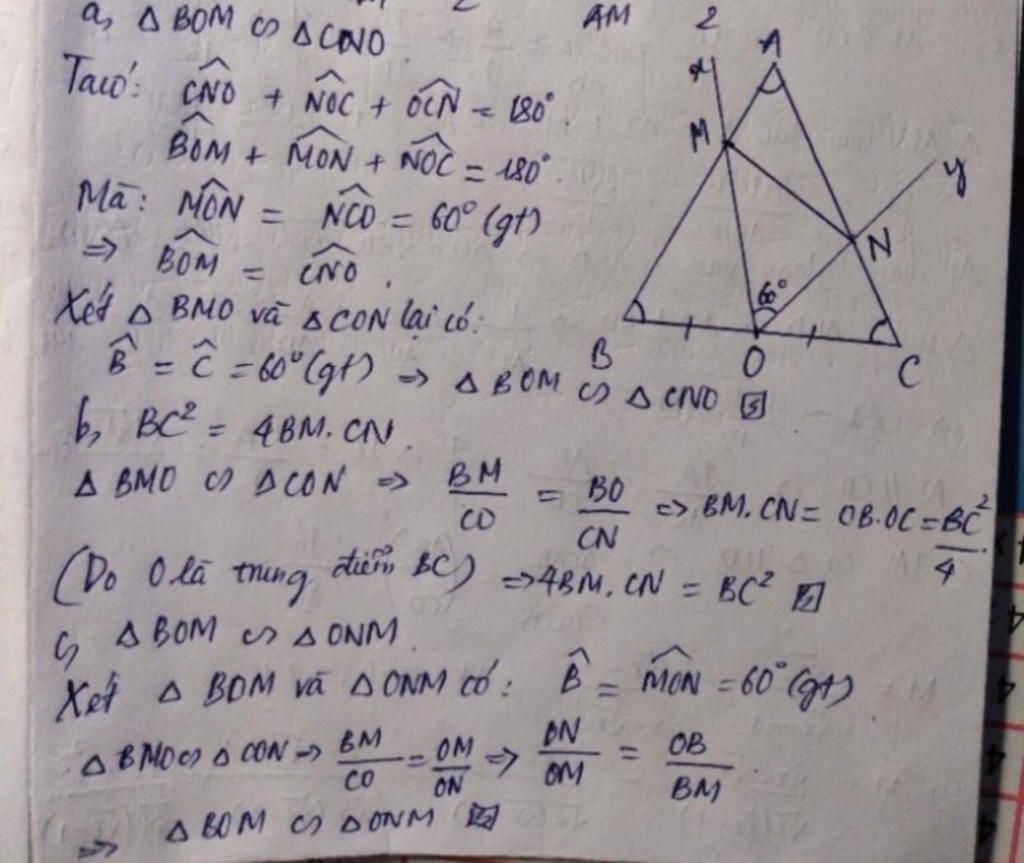 AM 2
a, △BOM ∽ △CNO.
Ta có: \widehat{CNO} + \widehat{NOC} + \widehat{OCN} = 180°.
\widehat{BOM} + \widehat{MON} + \widehat{NOC} = 180°.
Mà: \widehat{MON} = \widehat{NCO} = 60° (gt)
⇒ \widehat{BOM} = \widehat{CNO}.
Xét △BMO và △CON lại có:
\widehat{B} = \widehat{C} = 60° (gt) ⇒ △BOM ∽ △CNO
b, BC² = 4BM.CN.
△BMO ∽ △CON ⇒ BM/CO = BO/CN ⇒ BM.CN = OB.OC = BC²/4.
(Do O là trung điểm BC) ⇒ 4BM.CN = BC²
c, △BOM ∽ △ONM.
Xét △BOM và △ONM có: \widehat{B} = \widehat{MON} = 60° (gt)
△BMO ∽ △CON ⇒ BM/CO = OM/ON ⇒ ON/OM = OB/BM.
⇒ △BOM ∽ △ONM
A
x
M
y
N
60°
B
O
C